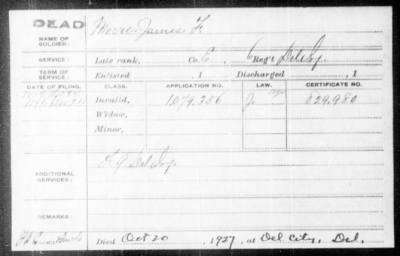 DEAD
NAME OF SOLDIER: Moore James H.
SERVICE: Late rank, Co. C, 6 Reg't Del Inf.
TERM OF SERVICE: Enlisted , 1 Discharged , 1
DATE OF FILING. CLASS. APPLICATION NO. LAW. CERTIFICATE NO.
Invalid, 1079.256 J. 829.980
Widow,
Minor,
ADDITIONAL SERVICES: Del Inf.
REMARKS:
Died Oct 20, 1927, at Del City, Del.